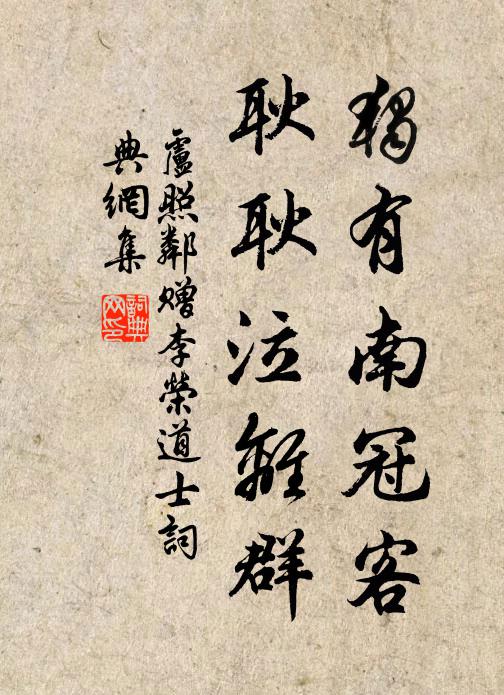 獨有南冠客
耿耿泣離群
盧照鄰贈李榮道士詞
典網集
詞典
网印